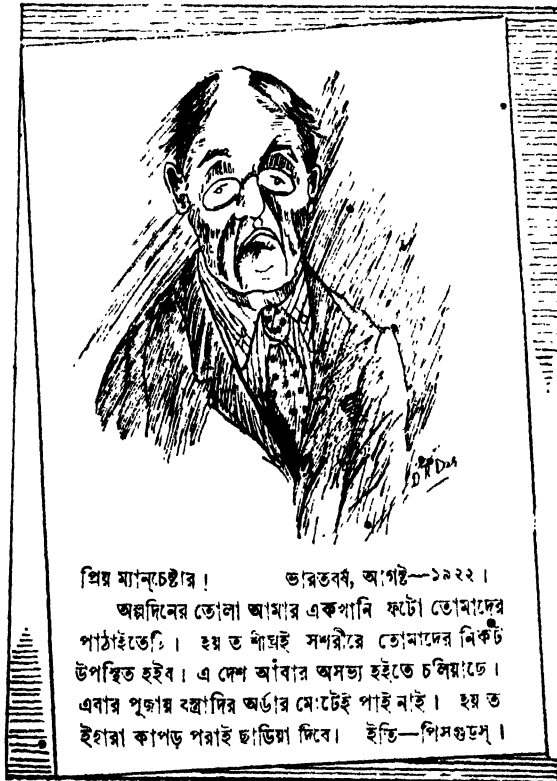 প্রিয় ম্যান্‌চেষ্টার! ভারতবর্ষ, আগষ্ট—১৯২২।
অল্পদিনের তোলা আমার একখানি ফটো তোমাদের
পাঠাইতেছি। হয় ত শীঘ্রই সশরীরে তোমাদের নিকট
উপস্থিত হইব। এ দেশ আবার অসভ্য হইতে চলিয়াছে।
এবার পূজায় বস্ত্রাদির অর্ডার মোটেই পাই নাই। হয় ত
ইহারা কাপড় পরাই ছাড়িয়া দিবে। ইতি—পিসগুডস্।